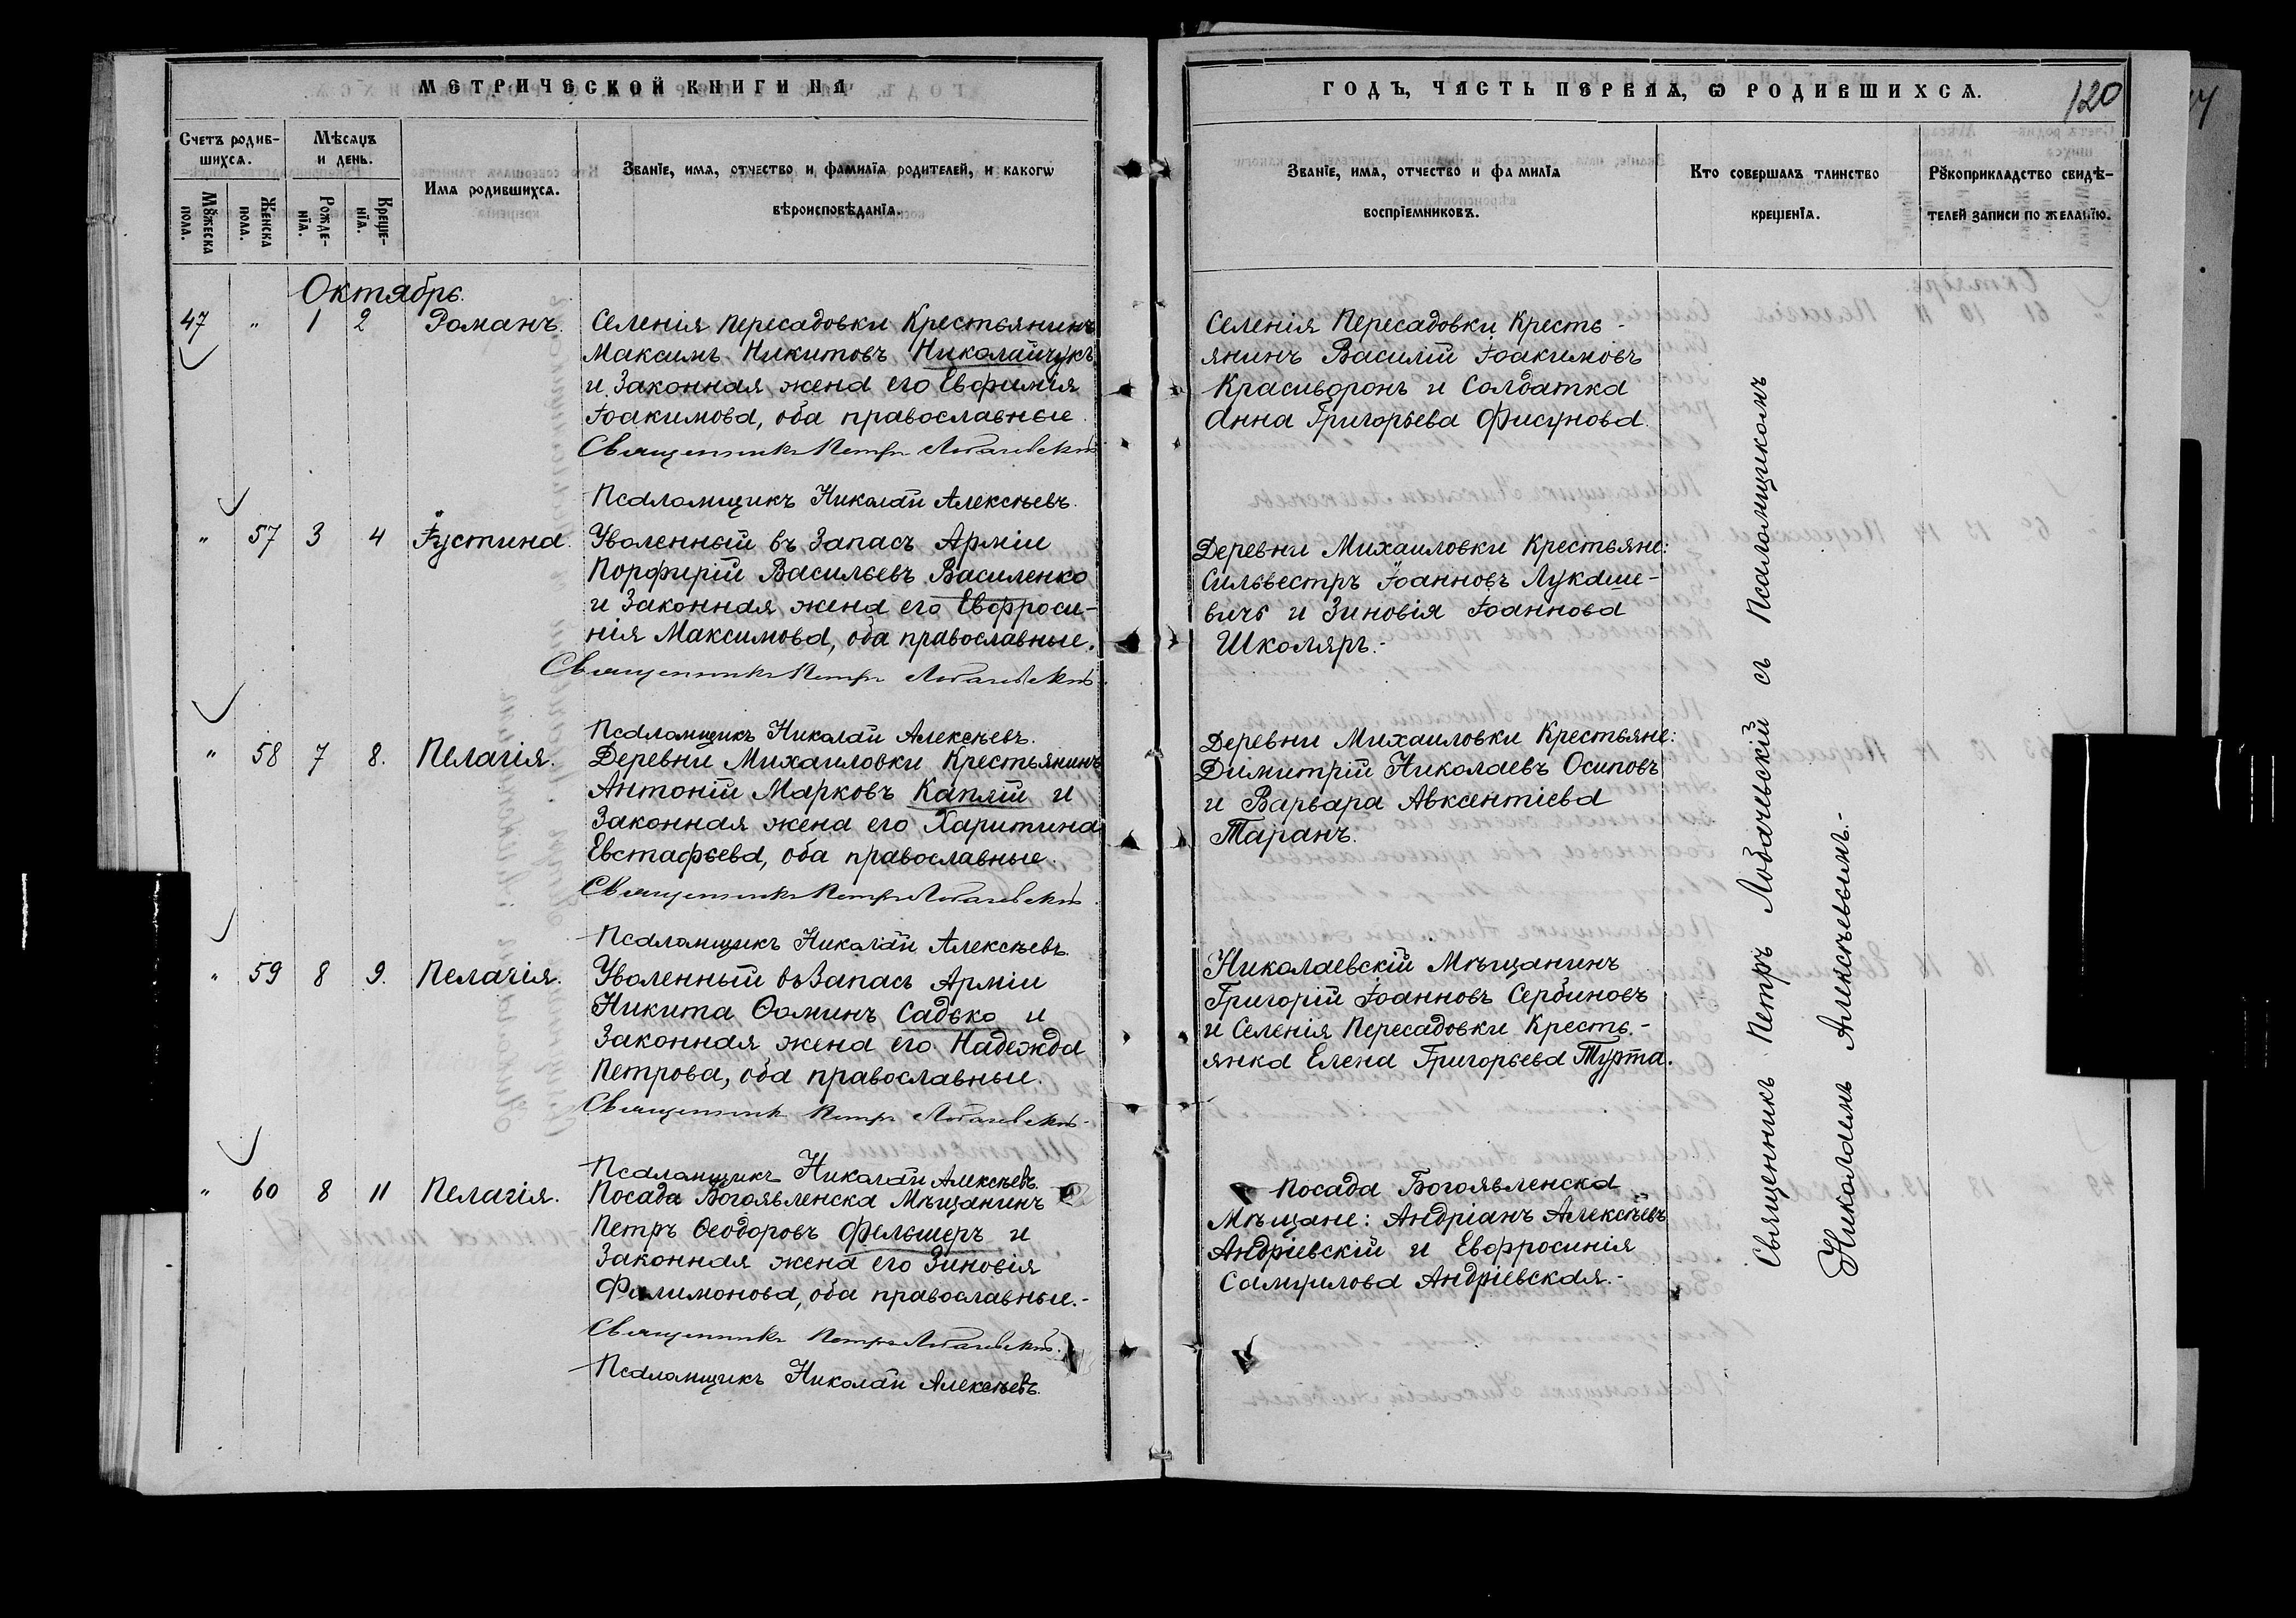 МЕТРИЧЕСКОЙ КНИГИ НА
Счетъ родив-
шихся.
Мѣсяцъ
и день.
Мꙋжеска
пола.
Женска
пола.
Рожде-
нїя.
Креще-
нїя.
Имя родившихся.
Званїе, имя, отчество и фамилїя родителей, и какогѡ
вѣроисповѣданїя.
Октябрь.
47 " 1 2 Романъ.
Селенія Пересадовки Крестьянинъ
Максимъ Никитовъ Николайчукъ
и Законная жена его Евфимія
Іоакимова, оба православные.
Священникъ Петръ Лобачевскій
Псаломщикъ Николай Алексѣевъ.
" 57 3 4 Іустина.
Уволенный въ Запасъ Арміи
Порфирій Васильевъ Василенко
и Законная жена его Евфроси-
нія Максимова, оба православные.
Священникъ Петръ Лобачевскій
Псаломщикъ Николай Алексѣевъ.
" 58 7 8. Пелагія.
Деревни Михаиловки Крестьянинъ
Антоній Марковъ Капляй и
Законная жена его Харитина
Евстафьева, оба православные.
Священникъ Петръ Лобачевскій
Псаломщикъ Николай Алексѣевъ.
" 59 8 9. Пелагія.
Уволенный въ Запасъ Арміи
Никита Ѳоминъ Садько и
Законная жена его Надежда
Петрова, оба православные.
Священникъ Петръ Лобачевскій
Псаломщикъ Николай Алексѣевъ.
" 60 8 11 Пелагія.
Посада Богоявленска Мѣщанинъ
Петръ Ѳеодоровъ Фельшеръ и
Законная жена его Зиновія
Филимонова, оба православные.-
Священникъ Петръ Лобачевскій.
Псаломщикъ Николай Алексѣевъ.
ГОДЪ, ЧАСТЬ ПЕРВАЯ, Ѡ РОДИВШИХСЯ.
120
Званїе, имя, отчество и фамилїя
воспрїемниковъ.
Кто совершалъ таинство
крещенїя.
Рꙋкоприкладство свидѣ-
телей записи по желанїю.
Селенія Пересадовки Кресть-
янинъ Василій Іоакимовъ
Красиворонъ и Солдатка
Анна Григорьева Фисунова.
Деревни Михаиловки Крестьяне:
Сильвестръ Іоанновъ Лукаше-
вичъ и Зиновія Іоаннова
Школяръ.-
Деревни Михаиловки Крестьяне:
Димитрій Николаевъ Осиповъ
и Варвара Авксентіева
Таранъ.
Николаевскій Мѣщанинъ
Григорій Іоанновъ Сербиновъ
и Селенія Пересадовки Кресть-
янка Елена Григорьева Турта.
Посада Богоявленска
Мѣщане: Андріанъ Алексѣевъ
Андріевскій и Евфросинія
Самуилова Андріевская.-
Священникъ Петръ Лобачевскій съ Псаломщикомъ
Николаемъ Алексѣевымъ.-